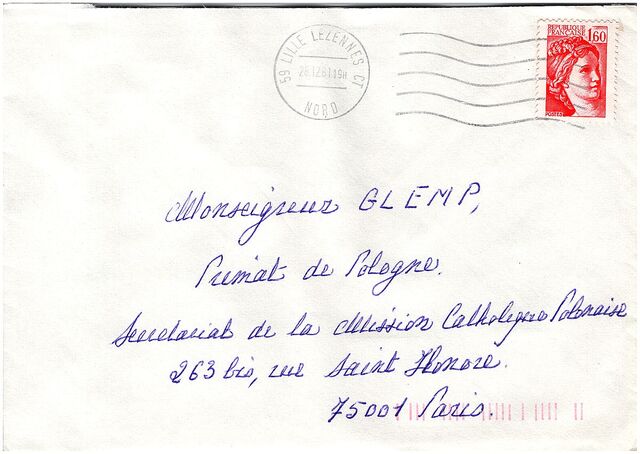 59 LILLE LEZENNES CT
28.12.81 19H
NORD
REPUBLIQUE
FRANCAISE 1,60
POSTES
Monseigneur GLEMP,
Primat de Pologne.
Secretariat de la Mission Catholique Polonaise
263 bis, rue Saint Honore.
75001 Paris.